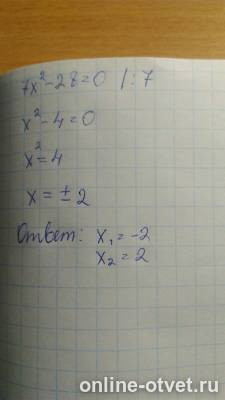 7x²-28=0 |:7
x²-4=0
x²=4
x=±2
Ответ: x₁=-2
x₂=2
online-otvet.ru